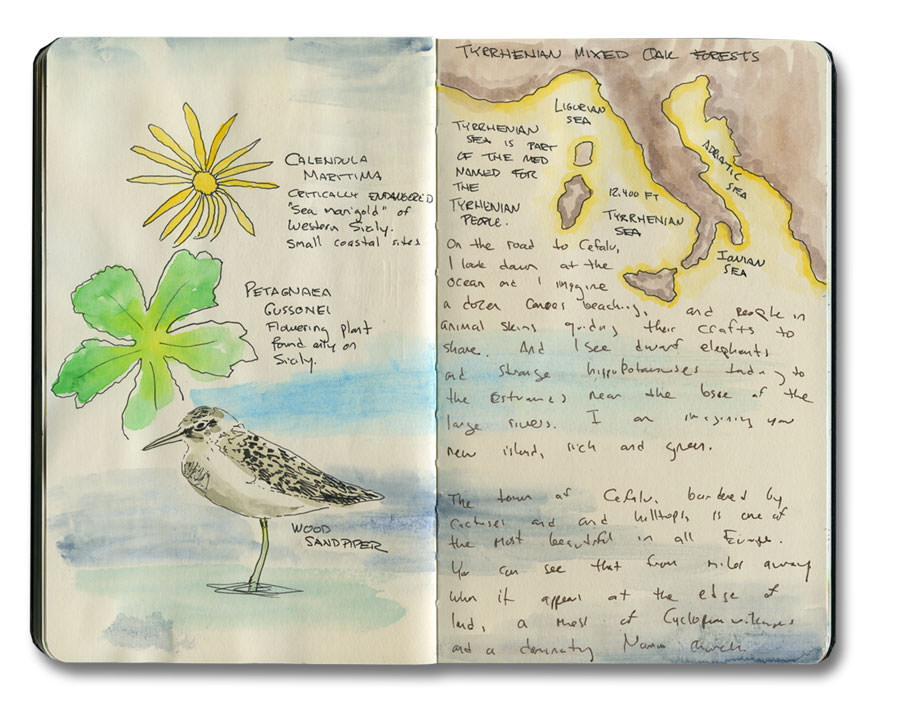 CALENDULA
MARITIMA
CRITICALLY ENDANGERED
"Sea marigold" of
Western Sicily.
Small coastal sites
PETAGNAEA
GUSSONEI
Flowering plant
found only on
Sicily.
WOOD
SANDPIPER
TYRRHENIAN MIXED OAK FORESTS
LIGURIAN
SEA
ADRIATIC
SEA
TYRRHENIAN
SEA IS PART
OF THE MED
NAMED FOR
THE
TYRHENIAN
PEOPLE.
12,400 FT
TYRRHENIAN
SEA
IONIAN
SEA
On the road to Cefalu,
I look down at the
ocean and I imagine
a dozen canoes beaching, and people in
animal skins guiding their crafts to
shore. And I see dwarf elephants
and strange hippopotamuses to
the estuaries near the base of the
large rivers. I am imagining you
new island, rich and green.
The town of Cefalu, bordered by
cactuses and and hilltops, is one of
the most beautiful in all Europe.
You can see that from miles away
when it appears at the edge of
land, a mass of Cyclopean
and a Norman church